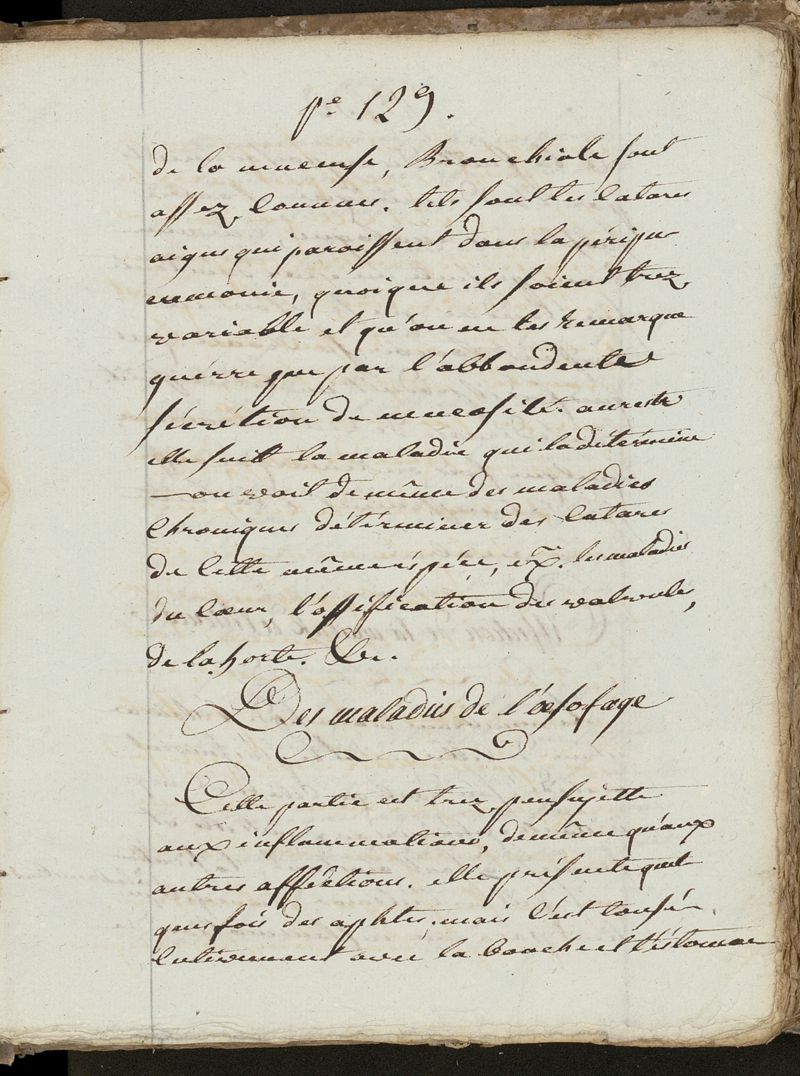 pe 129.
de la muceuse, Bronchiale sont
assez connues. tels sont les catares
aigus qui paroissent dans la péripn-
eumonie, quoique ils soient trez
variable et qu'on ne les remarque
guérre que par l'abbondente
sécrétion de mucosité. au reste
elle suit la maladie qui la détérmine
— on voit de même des maladies
chroniques détérminer des catares
de cette même éspéce, ex. les maladies
du cœur, l'ossification des valvules,
de la horte. &c.
Des maladies de l'œsofage
Cette partie est trez peu sujette
aux inflammations, de même qu'aux
autres afféctions. elle présente quel-
ques fois des aphtes, mais c'est consé-
cutivement avec la bouche et l'éstomac